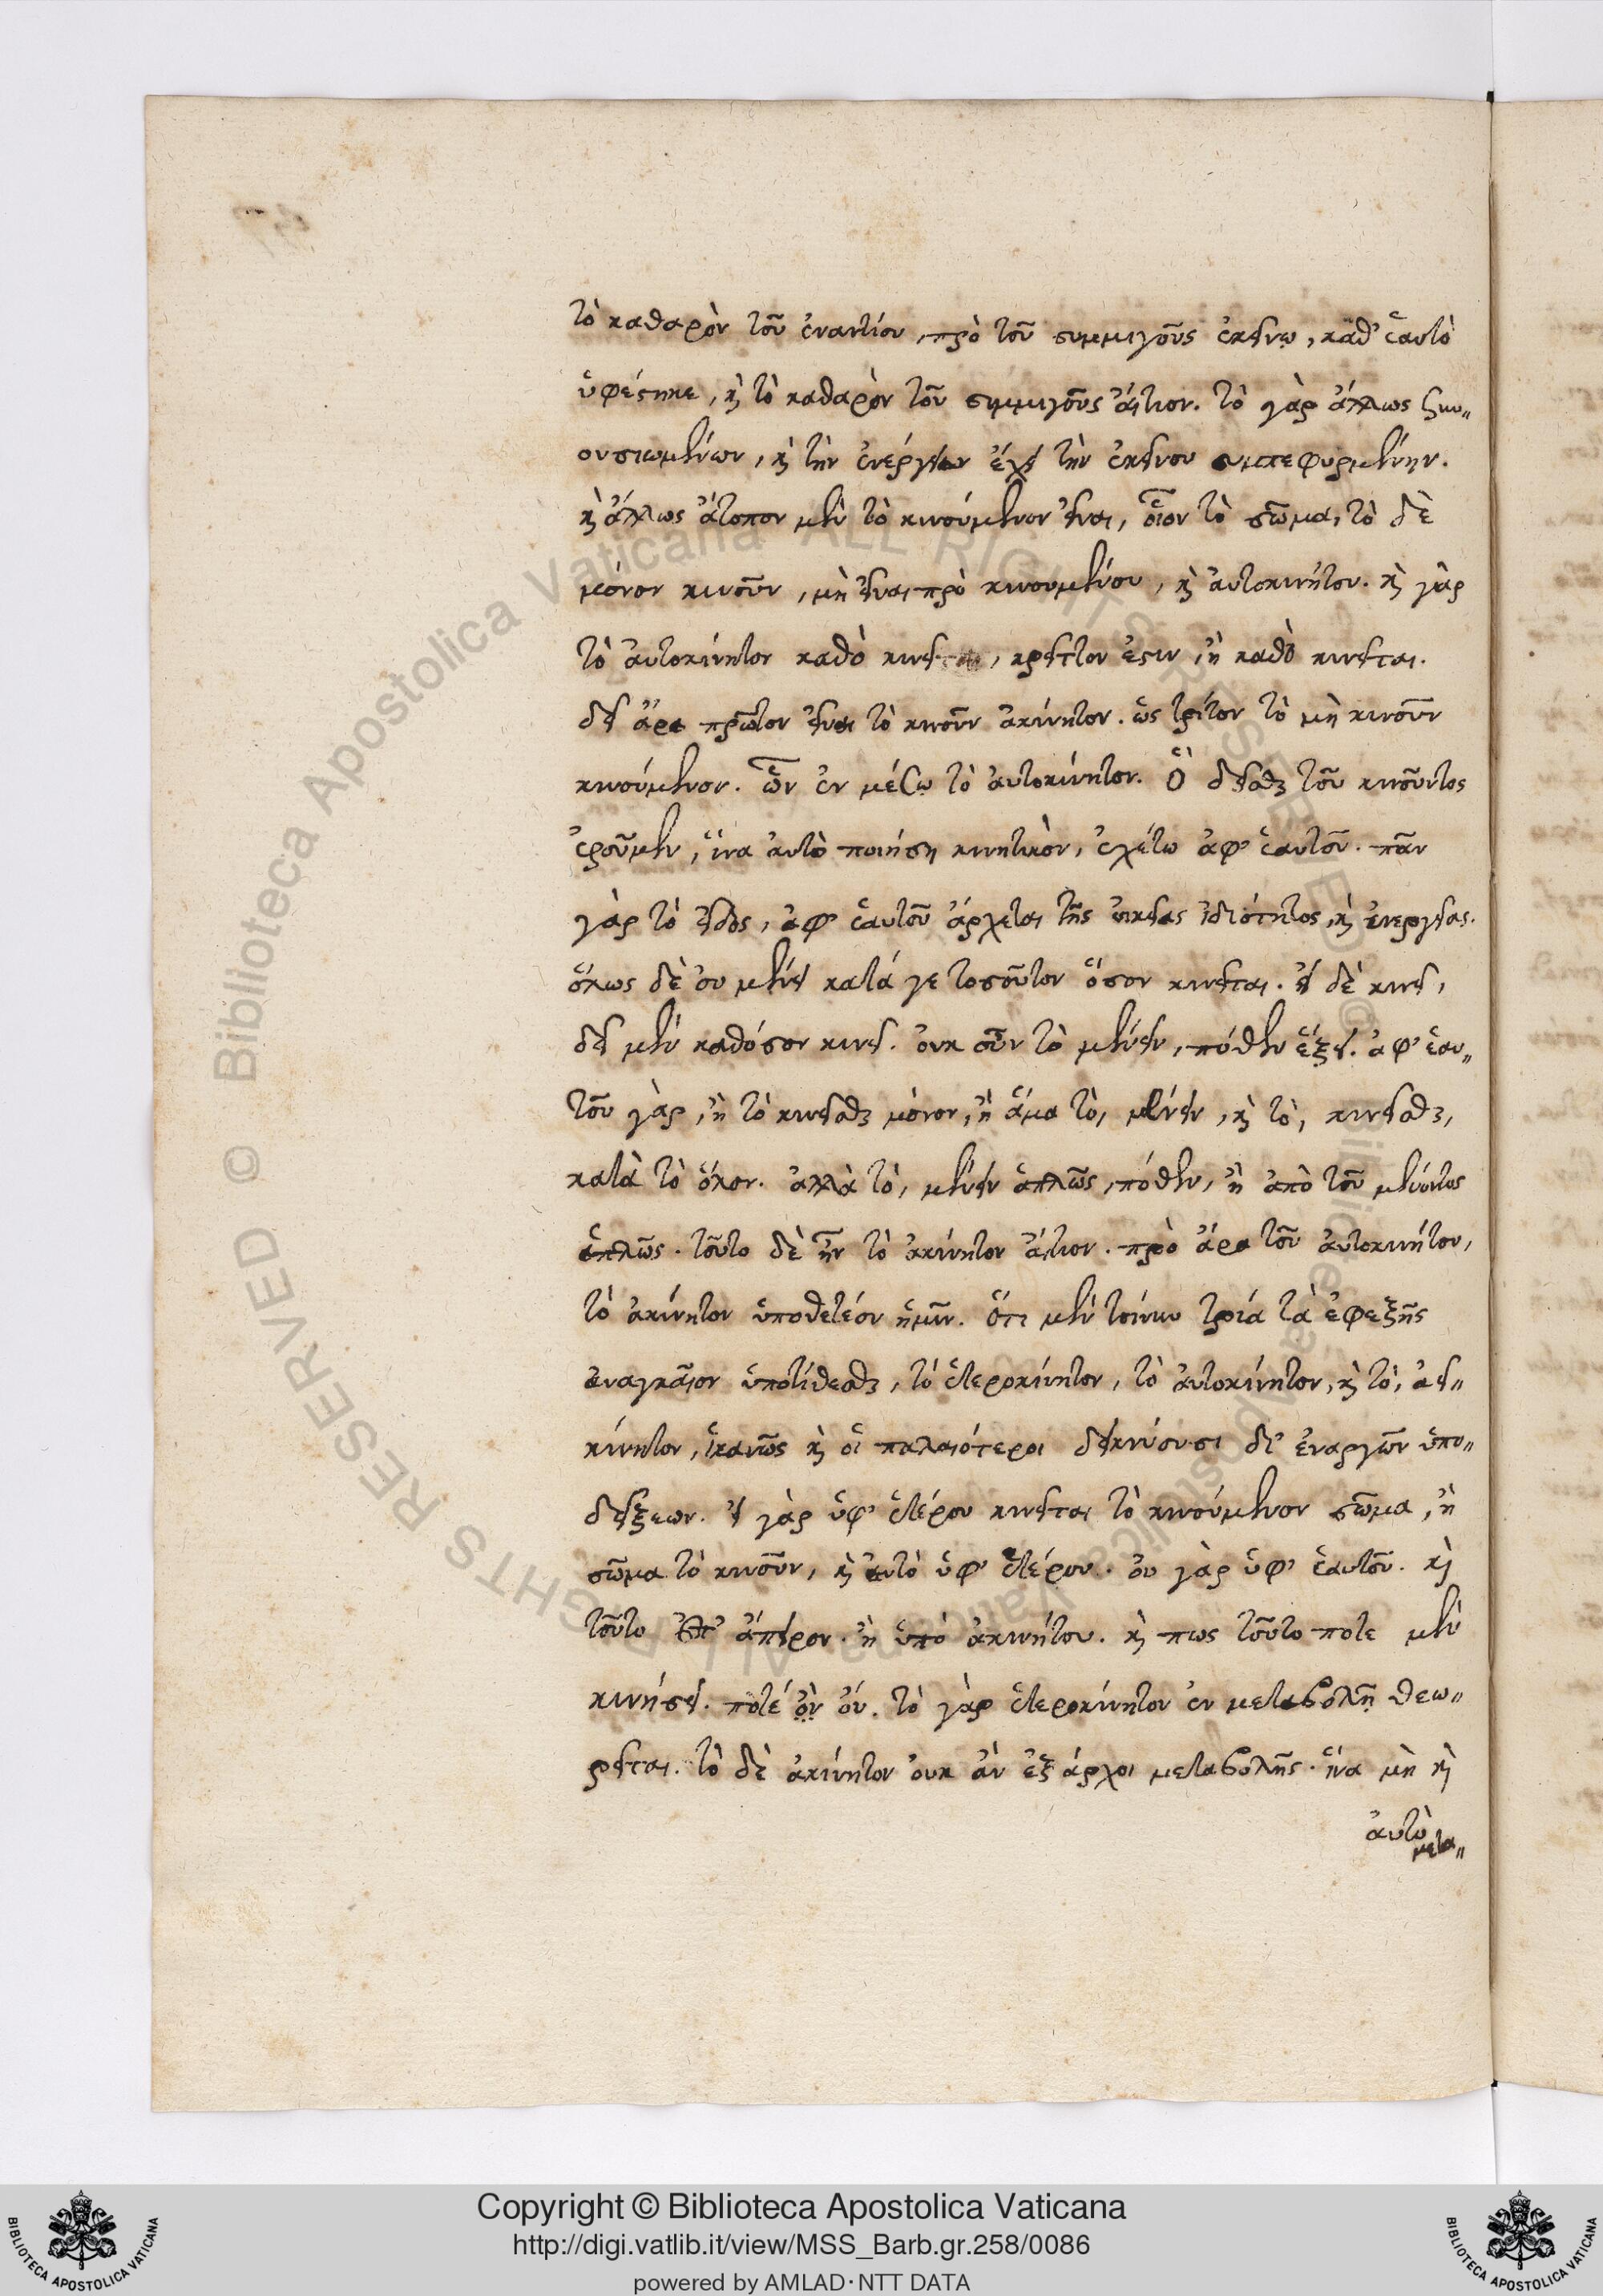 τὸ καθαρὸν τοῦ ἐναντίου πρὸ τοῦ συμμιγοῦς ἐκείνῳ, καθ' ἑαυτὸ
ὑφέστηκε, καὶ τὸ καθαρὸν τοῦ συμμιγοῦς ἄιτιον. τὸ γὰρ ἄλλως συν"
ουσιωμένων, καὶ τὴν ἐνέργειαν ἔχει τὴν ἐκείνου συμπεφυρμένην.
καὶ ἄλλως ἄτοπον μὲν τὸ κινούμενον εἶναι, οἷον τὸ σῶμα, τὸ δὲ
μόνον κινοῦν, μὴ εἶναι πρὸ κινουμένου, καὶ ἀυτοκινήτου. καὶ γὰρ
τὸ ἀυτοκίνητον καθὸ κινεῖ, κρεῖττον ἐστιν, ἢ καθὸ κινεῖται.
δεῖ ἄρα πρῶτον εἶναι τὸ κινοῦν ἀκίνητον. ὡς τρίτον τὸ μὴ κινοῦν
κινούμενον. ὧν ἐν μέσῳ τὸ ἀυτοκίνητον. ὃ δεῖσθαι τοῦ κινοῦντος
ἐροῦμεν, ἵνα ἀυτὸ ποιήσῃ κινητικὸν, ἐχέτω ἀφ' ἑαυτοῦ. πᾶν
γὰρ τὸ εἶδος, ἀφ' ἑαυτοῦ ἄρχεται τῆς οἰκείας ἰδιότητος, καὶ ἐνεργείας.
ὅλως δὲ ὀυ μένει κατά γε τοσοῦτον ὅσον κινεῖται. εἰ δὲ κινεῖ,
δεῖ μὲν καθόσον κινεῖ. ὀυκ οὖν τὸ μένειν, πόθεν ἕξει. ἀφ' ἑαυ"
τοῦ γὰρ, ἢ τὸ κινεῖσθαι μόνον, ἢ ἅμα τὸ, μένειν, καὶ τὸ, κινεῖσθαι,
κατὰ τὸ ὅλον. ἀλλὰ τὸ, μένειν ἁπλῶς, πόθεν, ἢ ἀπὸ τοῦ μένοντος
ἁπλῶς. τοῦτο δὲ ἦν τὸ ἀκίνητον ἄιτιον. πρὸ ἄρα τοῦ ἀυτοκινήτου,
τὸ ἀκίνητον ὑποθετέον ἡμῖν. ὅτι μὲν τοίνυν τρία τὰ ἐφεξῆς
ἀναγκαῖον ὑποτίθεσθαι, τὸ ἑτεροκίνητον, τὸ ἀυτοκίνητον, καὶ τὸ, ἀει"
κίνητον, ἱκανῶς καὶ ὁι παλαιότεροι δεικνύουσι δι' ἐναργῶν ὑπο"
δείξεων. εἰ γὰρ ὑφ' ἑτέρου κινεῖται τὸ κινούμενον σῶμα, ἢ
σῶμα τὸ κινοῦν, καὶ ἀυτὸ ὑφ' ἑτέρου. ὀυ γὰρ ὑφ' ἑαυτοῦ. καὶ
τοῦτο ἐπ' ἄπειρον. ἢ ὑπὸ ἀκινήτου. καὶ πως τοῦτο ποτε μὲν
κινήσει. ποτέ ὀὺ ὀύ. τὸ γὰρ ἑτεροκίνητον ἐν μεταβολῇ θεω"
ρεῖται. τὸ δὲ ἀκίνητον ὀυκ ἀν ἐξάρχοι μεταβολῆς. ἵνα μὴ καὶ
ἀυτὸ
μετα"
Biblioteca Apostolica Vaticana ALL RIGHTS RESERVED ©
Copyright © Biblioteca Apostolica Vaticana
http://digi.vatlib.it/view/MSS_Barb.gr.258/0086
powered by AMLAD·NTT DATA
BIBLIOTECA APOSTOLICA VATICANA
BIBLIOTECA APOSTOLICA VATICANA